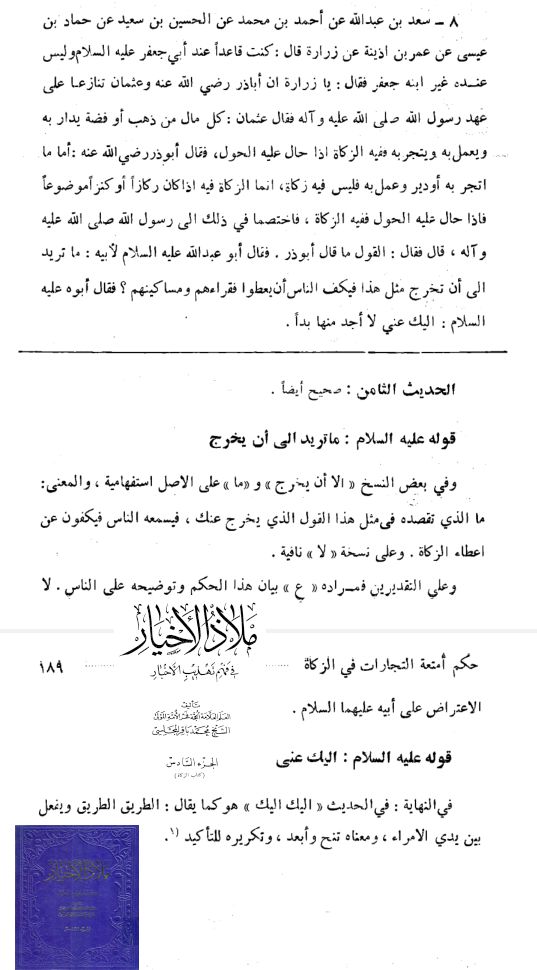 ٨ ـ سعد بن عبدالله عن أحمد بن محمد عن الحسين بن سعيد عن حماد بن
عيسى عن عمر بن اذينة عن زرارة قال : كنت قاعداً عند أبي جعفر عليه السلام وليس
عنــده غير ابنه جعفر فقال : يا زرارة ان أباذر رضي الله عنه وعثمان تنازعا على
عهد رسول الله صلى الله عليه وآله فقال عثمان : كل مال من ذهب أو فضة يدار به
ويعمل به ويتجر به ففيه الزكاة اذا حال عليه الحول، فقال أبوذر رضي الله عنه : أما ما
اتجر به أودير وعمل به فليس فيه زكاة، انما الزكاة فيه اذا كان ركازاً أو كنزاً موضوعاً
فاذا حال عليه الحول ففيه الزكاة ، فاختصما في ذلك الى رسول الله صلى الله عليه
وآله ، قال فقال : القول ما قال أبوذر . فقال أبو عبدالله عليه السلام لأبيه : ما تريد
الى أن تخرج مثل هذا فيكف الناس أن يعطوا فقراءهم ومساكينهم ؟ فقال أبوه عليه
السلام : اليك عني لا أجد منها بداً .
الحديث الثامن : صحيح أيضاً .
قوله عليه السلام : ماتريد الى أن يخرج
وفي بعض النسخ « الا أن يخرج » و « ما » على الاصل استفهامية ، والمعنى:
ما الذي تقصده في مثل هذا القول الذي يخرج عنك ، فيسمعه الناس فيكفون عن
اعطاء الزكاة . وعلى نسخة « لا » نافية .
وعلى التقديرين فمــراده « ع » بيان هذا الحكم وتوضيحه على الناس . لا
ملاذ الأخيار
في فهم تهذيب الأخبار
حكم أمتعة التجارات في الزكاة ١٨٩
تأليف
العلم العلامة الحجة فخر الأمة المولى
الشيخ محمد باقر المجلسي
الاعتراض على أبيه عليهما السلام .
قوله عليه السلام : اليك عنى
الجزء السادس
(كتاب الزكاة)
في النهاية : في الحديث « اليك اليك » هو كما يقال : الطريق الطريق ويفعل
بين يدي الامراء ، ومعناه تنح وأبعد ، وتكريره للتأكيد (١.
ملاذ الأخيار